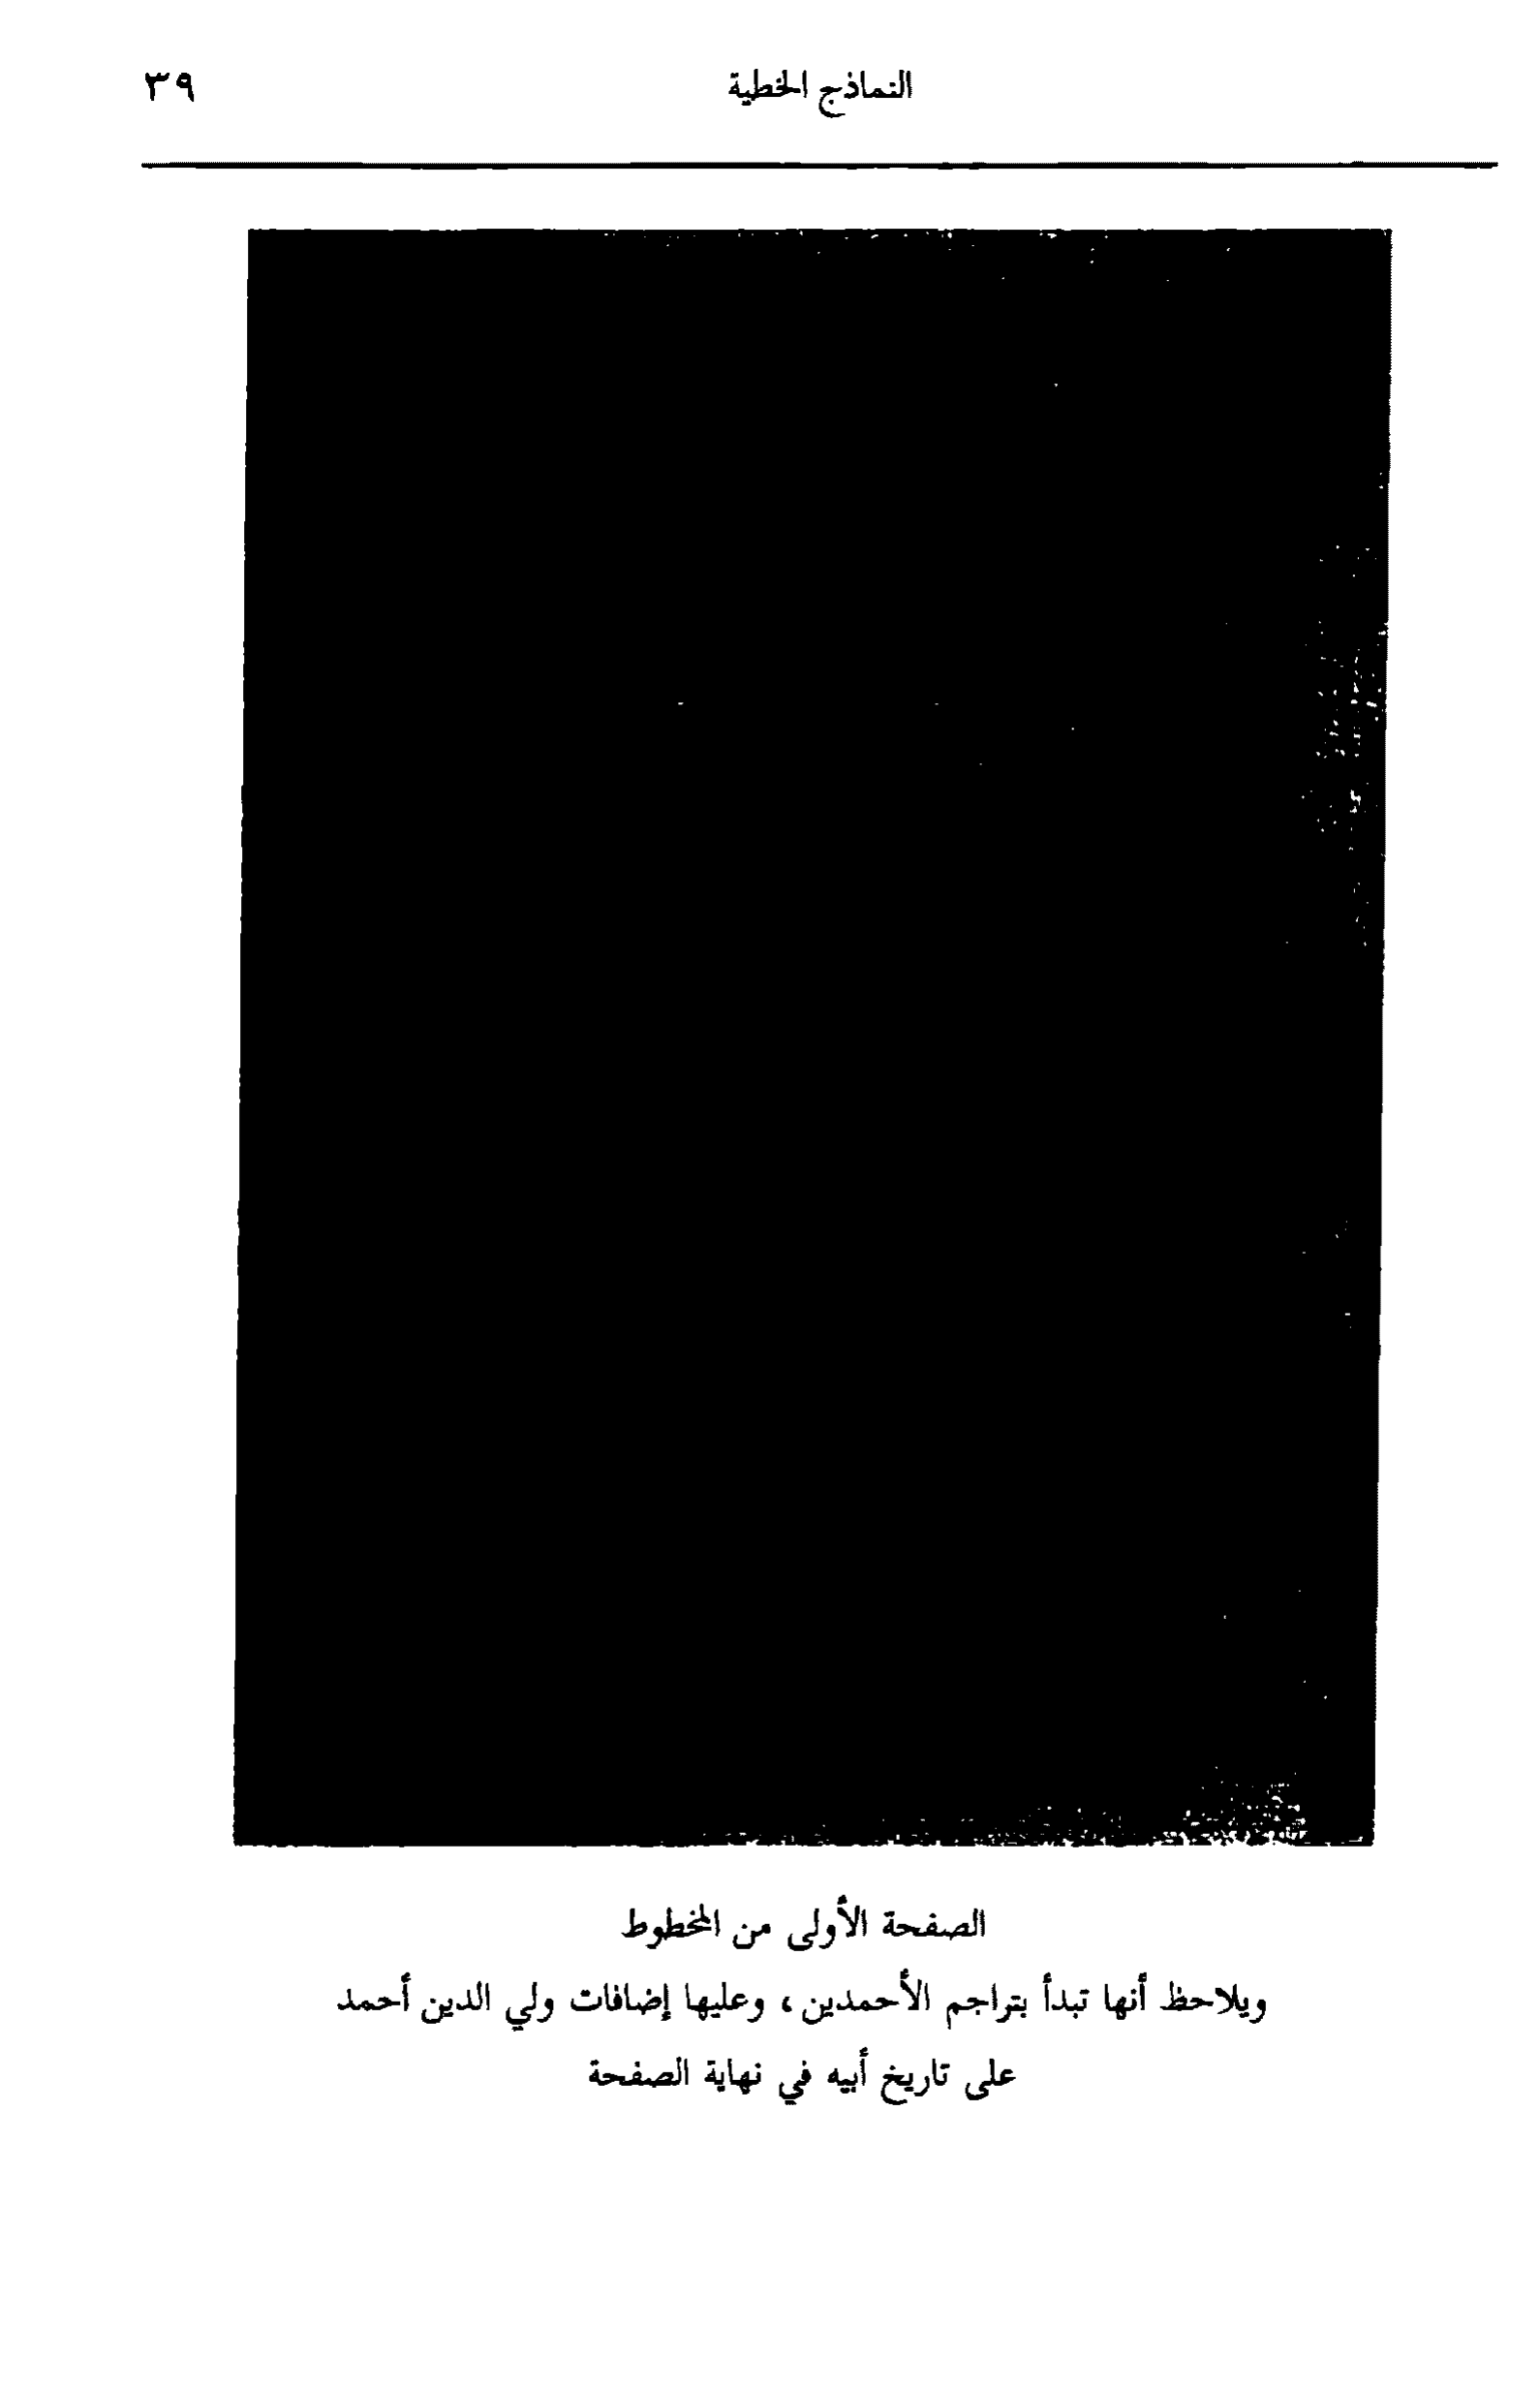 النماذج الخطية ٣٩
الصفحة الأولى من المخطوط
ويلاحظ أنها تبدأ بتراجم الأحمدين ، وعليها إضافات ولي الدين أحمد
على تاريخ أبيه في نهاية الصفحة